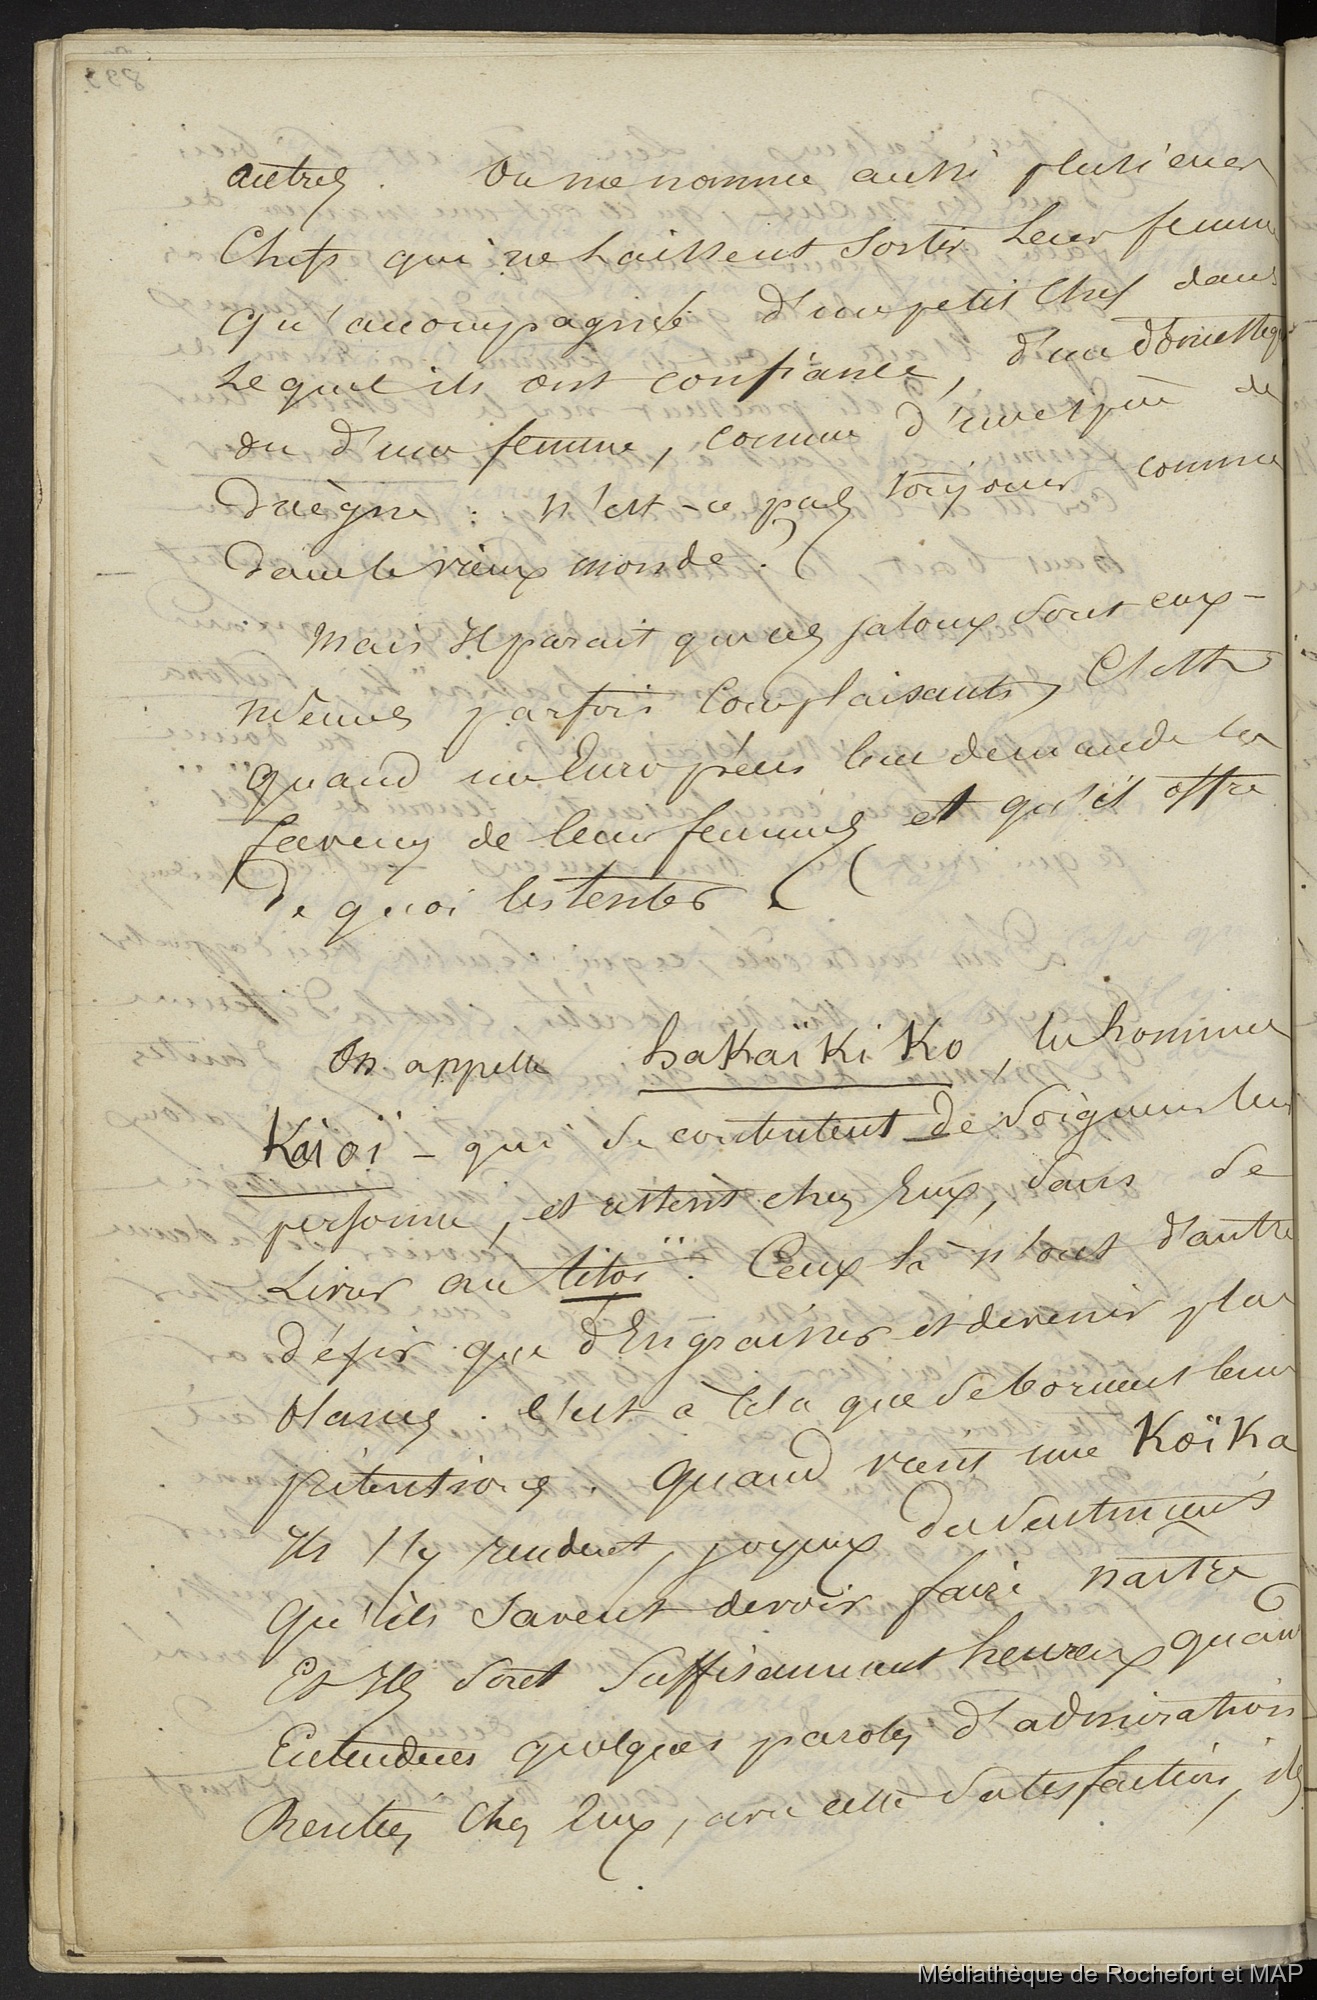 autres. On me nomme aussi plusieurs
Chefs qui ne laissent sortir leur femme
qu'accompagnée d'un petit Chef dans
lequel ils ont confiance, d'un domestique
ou d'une femme, comme d'une espèce de
Duègne : n'est-ce pas toujours comme
dans le vieux monde ?
Mais Il parait que ces jaloux sont eux-
mêmes parfois Complaisants, C'est
quand un Européen leur demande la
faveur de leur femmes et qu'il offre
De quoi les tenter.
On appelle hakaïkiko, les hommes
Kaïoï - qui se contentent de soigner leur
personne, et restent chez Eux, sans se
Livrer au titoï. Ceux là n'ont d'autre
désir que d'Engraisser et devenir plus
blancs. C'est à cela que se bornent leurs
prétentions. Quand vient une Koïka
Ils s'y rendent, joyeux des sentiments
qu'ils savent devoir faire naitre
Et Ils sont suffisamment heureux quand
Entendues quelques paroles d'admiration
Rentrés Chez Eux, avec cette satisfaction, ils
Médiathèque de Rochefort et MAP